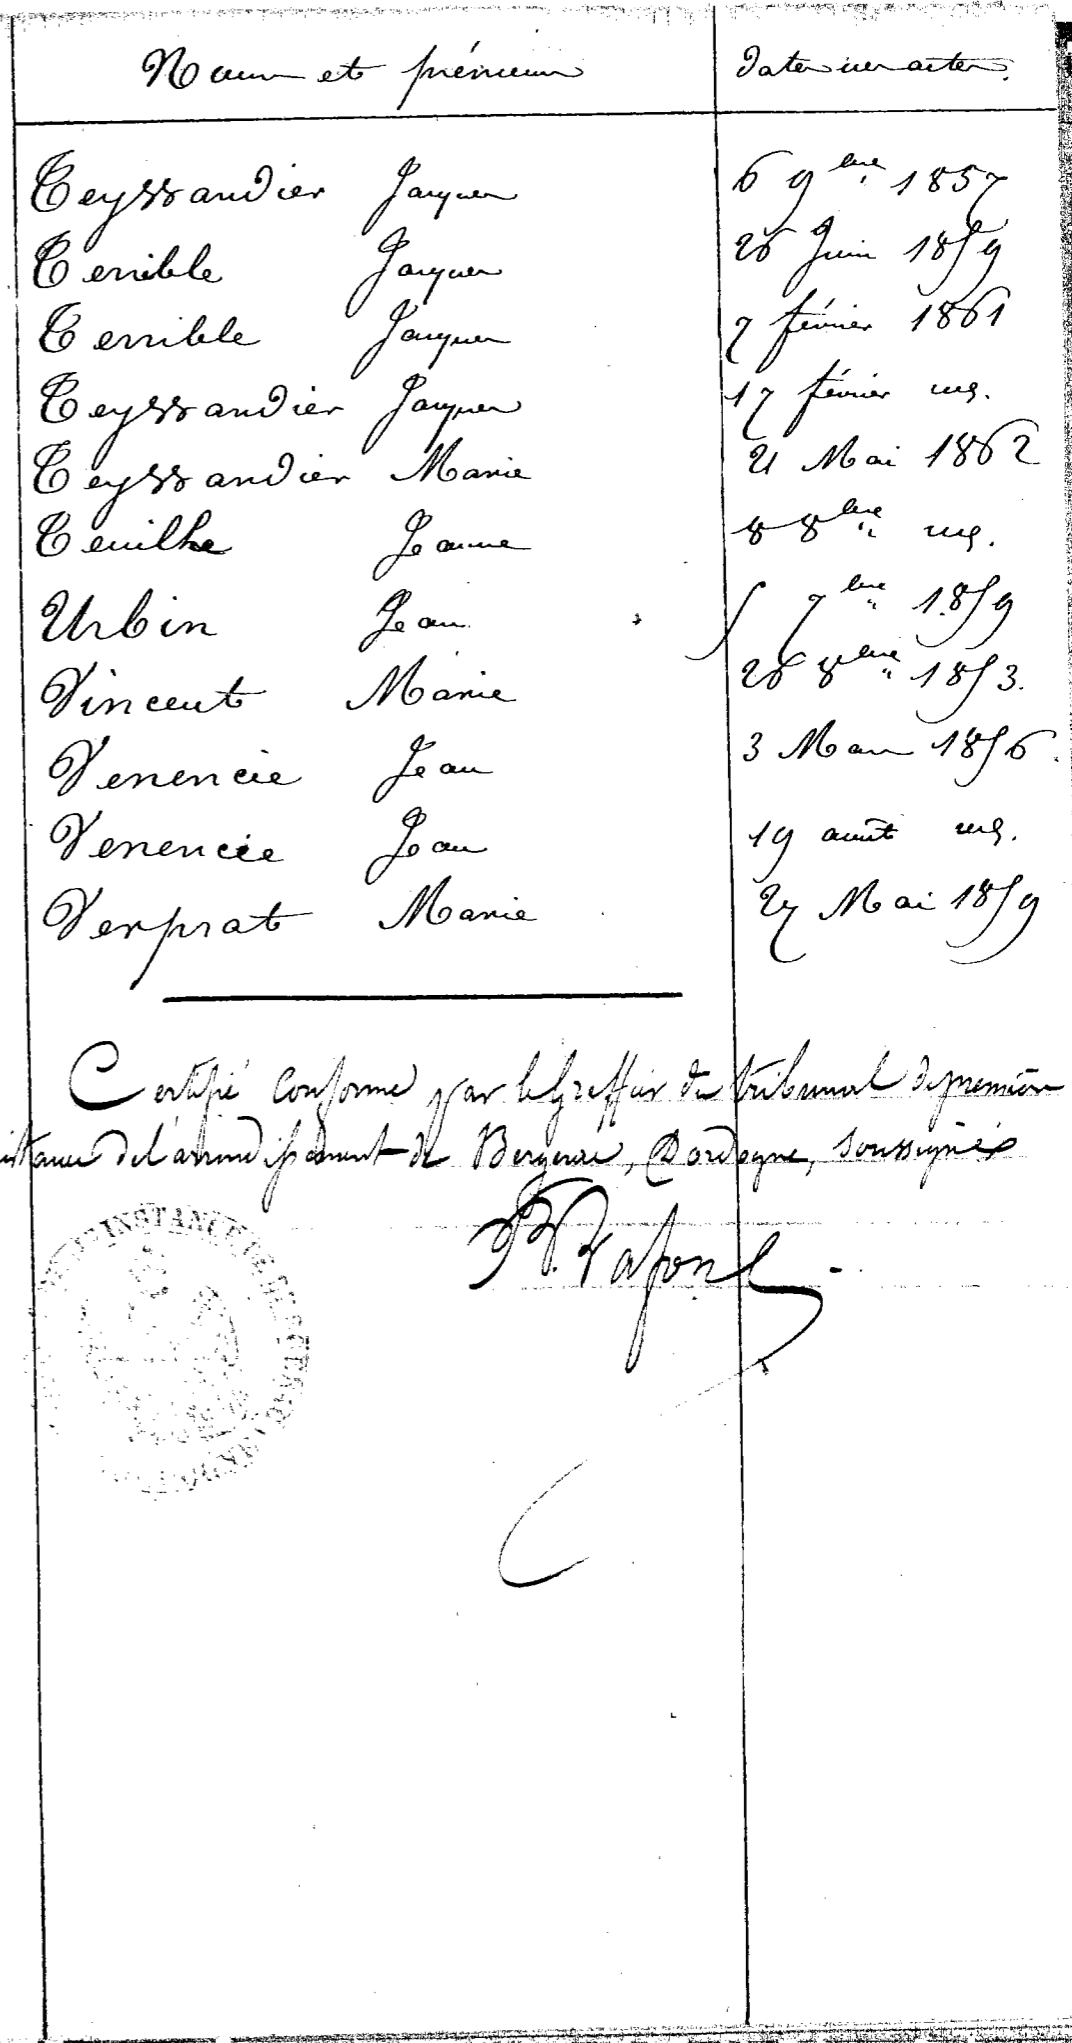 Noms et prénoms dates des actes.
Teyssandier Jacques 6 9bre 1857
Terrible Jacques 26 Juin 1859
Terrible Jacques 7 février 1861
Teyssandier Jacques 17 février mê.
Teyssandier Marie 21 Mai 1862
Teuilhe Jeanne 8 8bre mê.
Urbin Jean 5 7bre 1859
Vincent Marie 26 8bre 1853.
Venencie Jean 3 Mars 1856.
Venencie Jean 19 août mê.
Verprat Marie 27 Mai 1859
Certifié conforme par le Greffier du tribunal de première
instance de l'arrondissement de Bergerac, Dordogne, soussigné
Lafon
INSTANCE DE